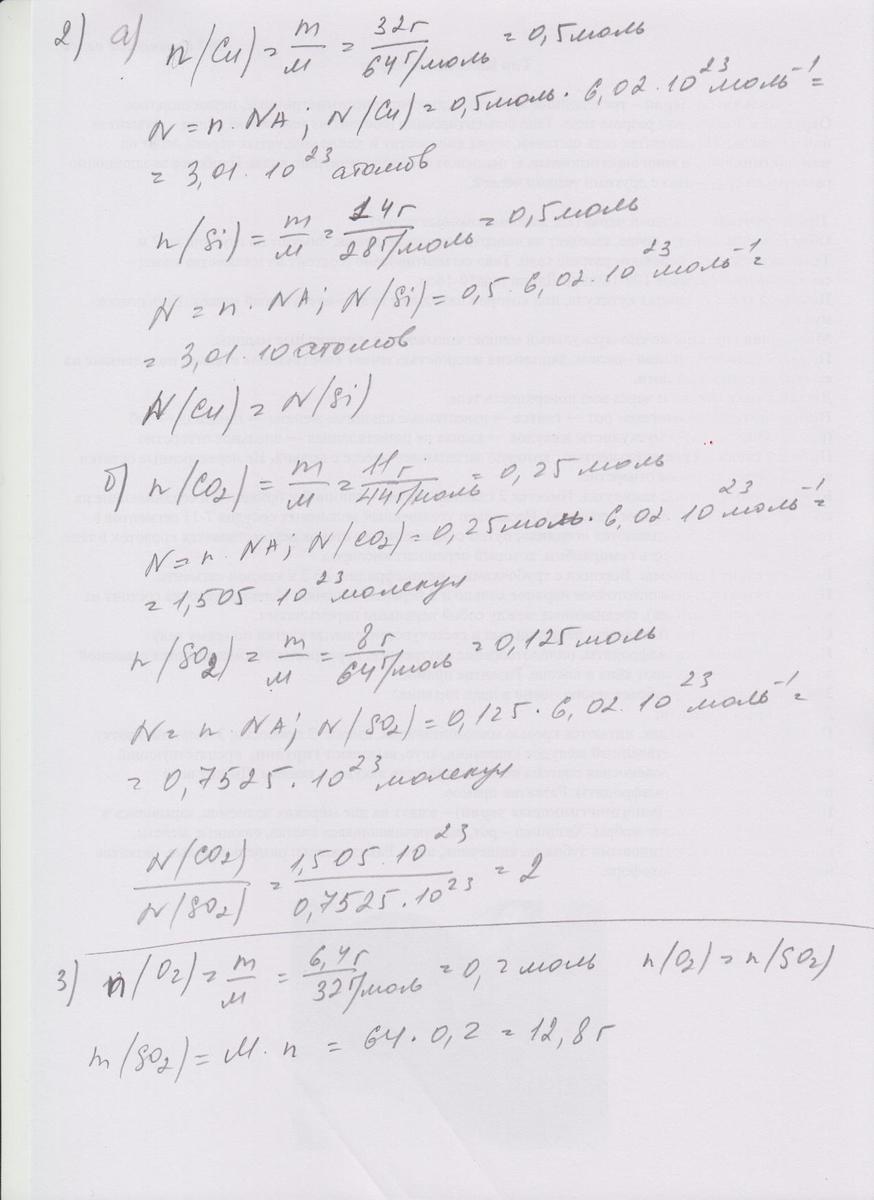 2) а) n(Cu) = m/M = 32г/64г/моль = 0,5моль
N = n·NA, N(Cu) = 0,5моль · 6,02·10²³ моль⁻¹ =
= 3,01·10²³ атомов
n(Si) = m/M = 14г/28г/моль = 0,5моль
N = n·NA; N(Si) = 0,5·6,02·10²³ моль⁻¹ =
= 3,01·10 атомов
N(Cu) = N(Si)
б) n(CO2) = m/M = 11г/44г/моль = 0,25 моль
N = n·NA; N(CO2) = 0,25моль·6,02·10²³ моль⁻¹ =
= 1,505·10²³ молекул
n(SO2) = m/M = 8г/64г/моль = 0,125моль
N = n·NA; N(SO2) = 0,125·6,02·10²³ моль⁻¹ =
= 0,7525·10²³ молекул
N(CO2)/N(SO2) = 1,505·10²³/0,7525·10²³ = 2
3) n(O2) = m/M = 6,4г/32г/моль = 0,2моль n(O2) = n(SO2)
m(SO2) = M·n = 64·0,2 = 12,8г